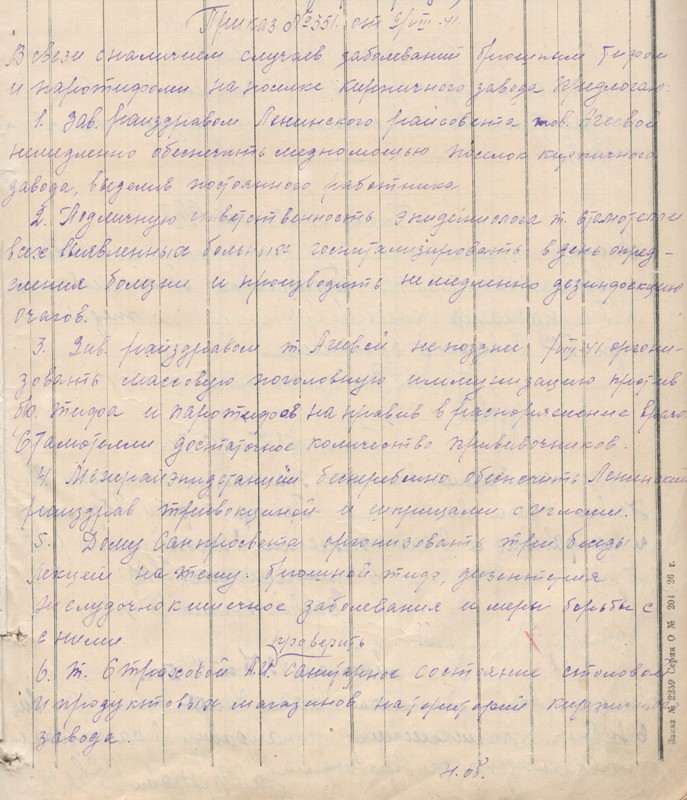 Приказ № 351. от 2/VIII-41.
В связи с наличием случаев заболеваний брюшным тифом
и паротифом на поселке кирпичного завода предлогаю:
1. Зав. райздравом Ленинского райсовета тов. Агеевой
немедленно обеспечить медпомощью поселок кирпичного
завода, выделив постоянного работника
2. Подличную ответственность эпидемиолога т.
всех выявленных больных госпитализировать в день опред-
еления болезни и производить немедленно дезинфекцию
очагов.
3. Зав. райздравом т. Агеевой не позднее /VIII-41. органи-
зовать массовую поголовную иммунизацию против
бр. тифа и паротифов направив в распоряжение врача
Стамотелли достаточное количество прививочников.
4. Межрайэпидстанции бесперебойно обеспечить Ленинский
райздрав тривакциной и шприцами с иглами.
5. Дому Санпросвета организовать три беседы
лекций на тему. брюшной тиф, дизентерия
желудочнокишечное заболевания и меры борьбы с
с ними
проверить
6. т. Страховой А.И. санитарное состояние столовой
и продуктовых магазинов на територий кирпичного
завода.
Н.об.
Заказ № 2239 Серия О № 201 26 г.